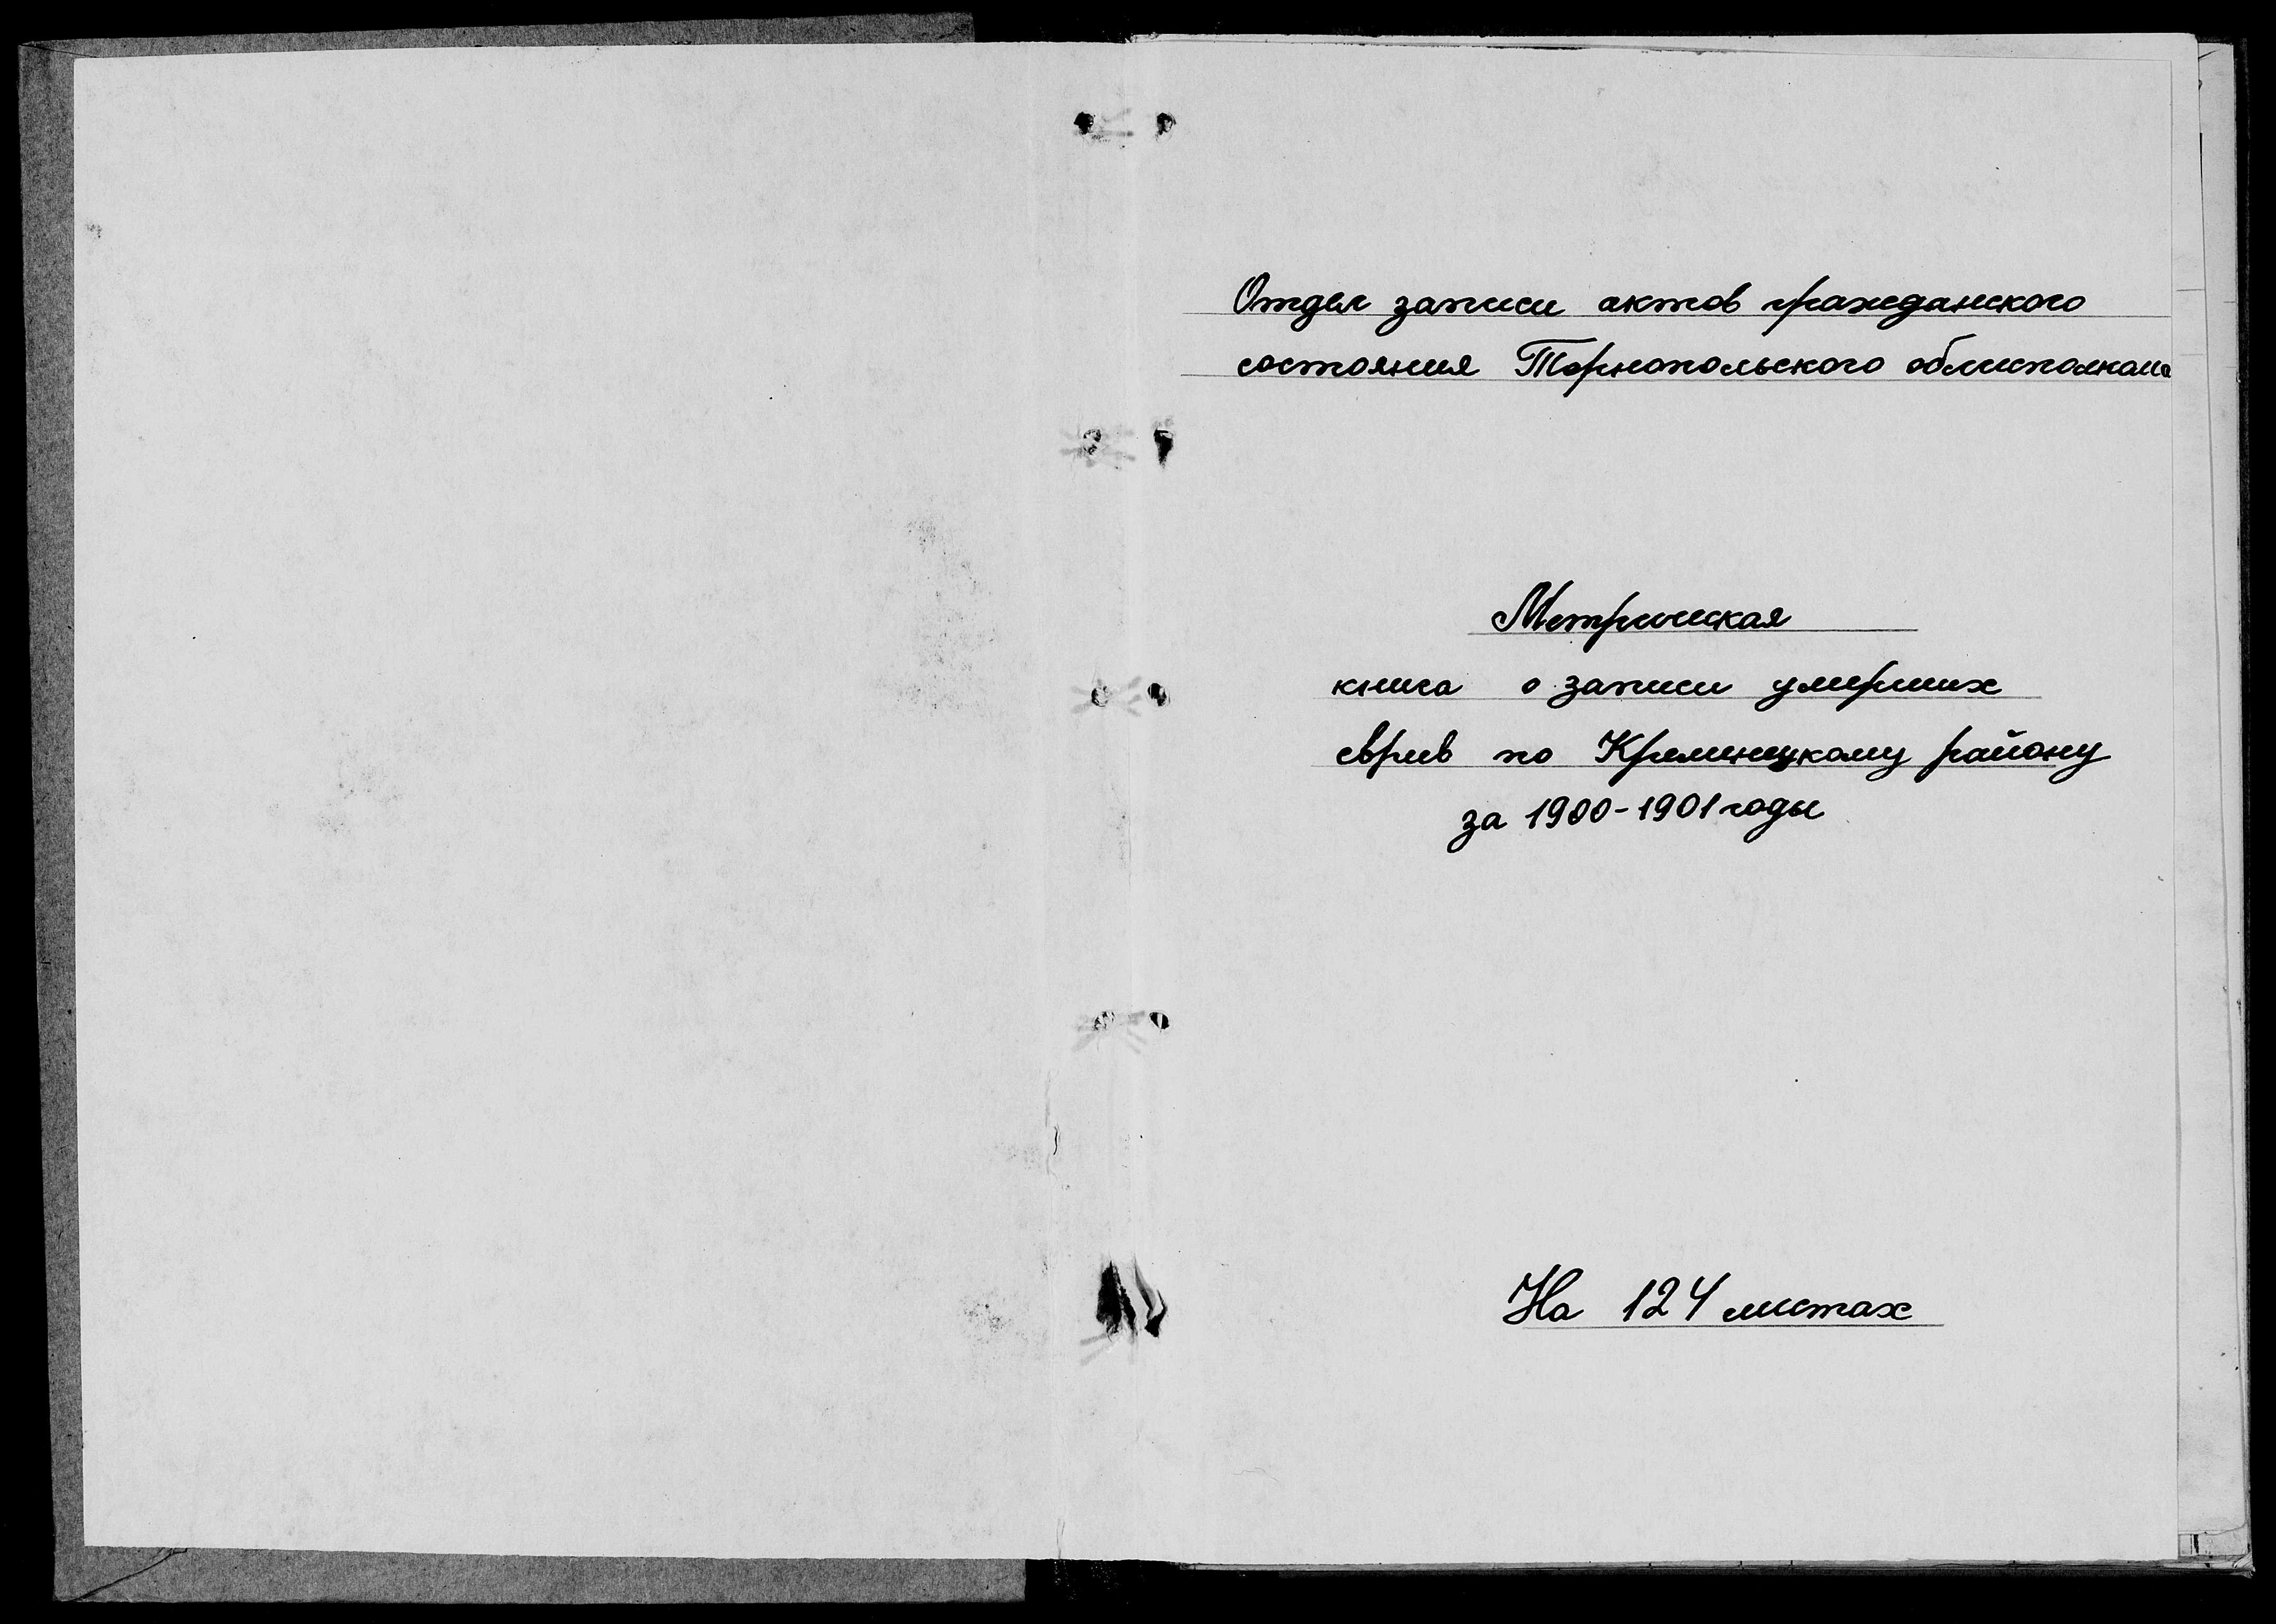 Отдел записи актов гражданского
состояния Тернопольского облисполкома
Метрическая
книга о записи умерших
евреев по Кременецкому району
за 1900-1901 годы
На 124 листах